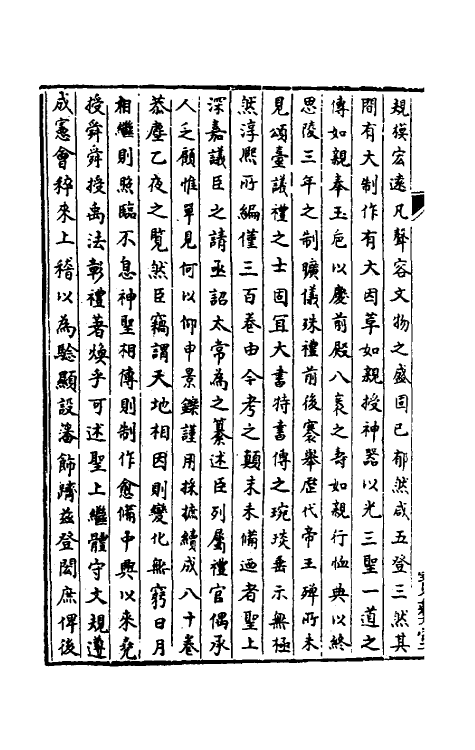 規模宏遠凡聲容文物之盛固已郁然成五登三然其
間有大制作有大因革如親授神器以光三聖一道之
傳如親奉玉巵以慶前殿八袠之壽如親行恤典以終
思陵三年之制曠儀殊禮前後褰舉歴代帝王殫所未
見頌臺議禮之士固宜大書特書傳之琬琰垂示無極
然淳熙所編僅三百卷由今考之顛末未備廼者聖上
深嘉議臣之請亟詔太常為之纂述臣列屬禮官偶承
人乏顧惟單見何以仰申景鑠謹用採摭續成八十卷
恭塵乙夜之覽然臣竊謂天地相因則變化無窮日月
相繼則照臨不息神聖相傳則制作愈備中興以來堯
授舜舜授禹法彰禮著煥乎可述聖上繼體守文規遵
成憲會稡來上稽以為驗顯設藩飾躋兹登閎庶俾後